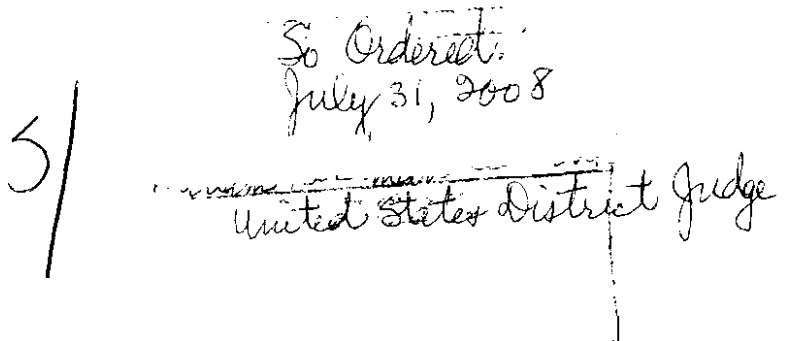 So Ordered.
July 31, 2008
S/
United States District Judge